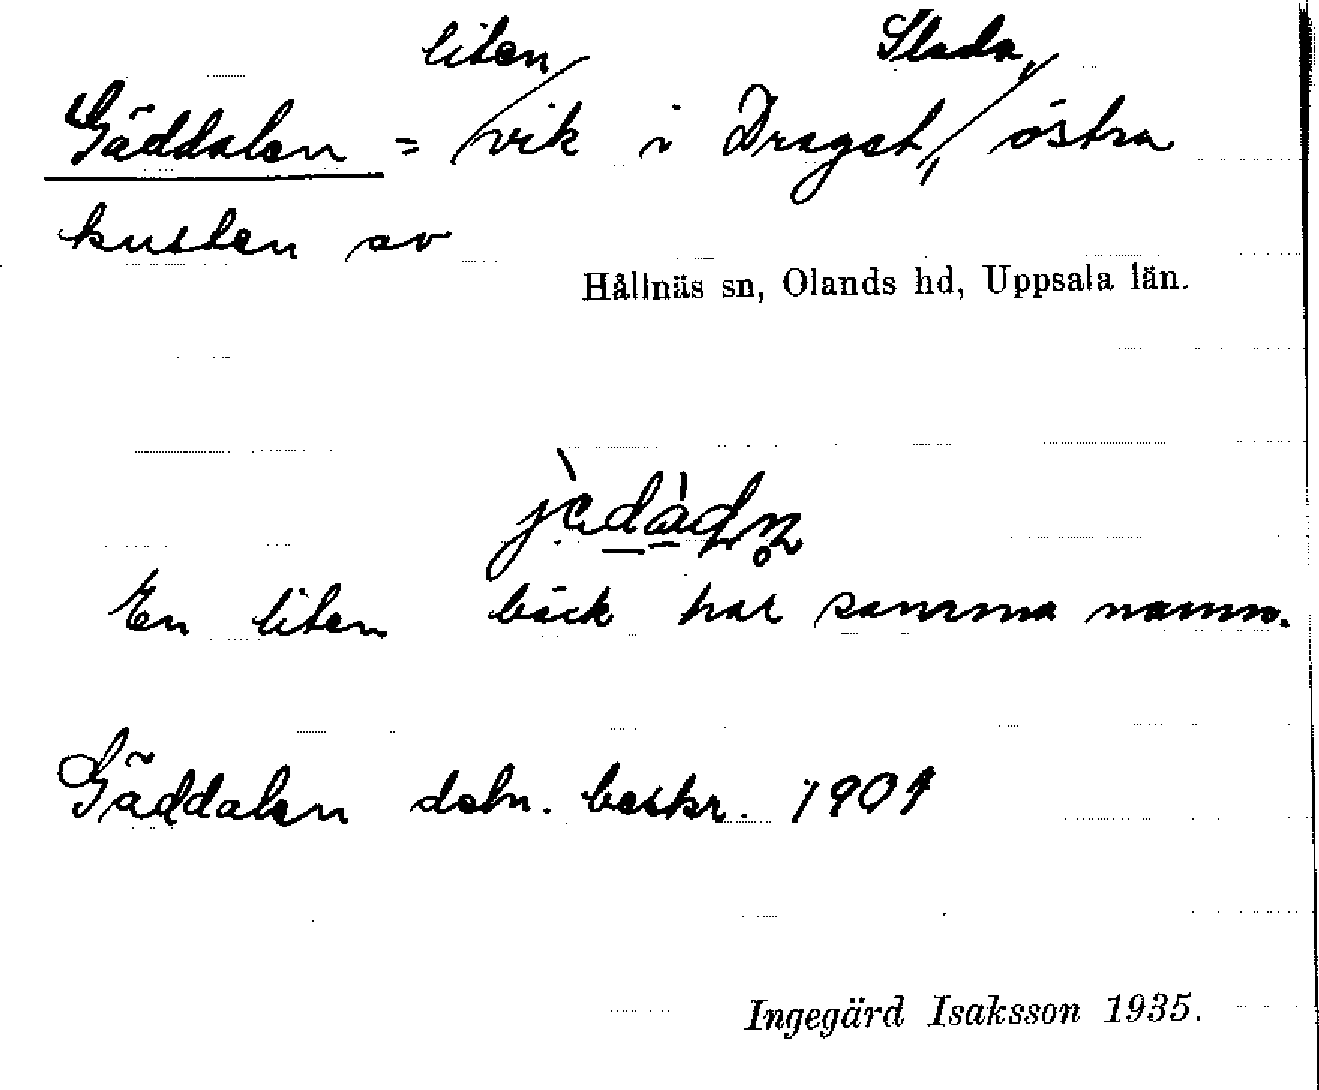 liten Slada,
Gäddalen = vik i Draget, östra
kusten av
Hållnäs sn, Olands hd, Uppsala län.
En liten bäck har samma namn.
Gäddalen dsbn. beskr. 1901
Ingegärd Isaksson 1935.